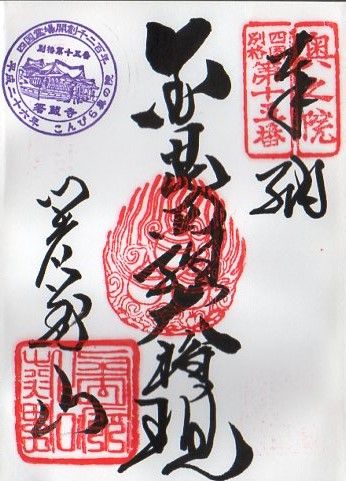 奥之院
四国
別格第十五番
奉納
金毘羅大権現
箸蔵山
四国霊場開創千二百年
別格第十五番
箸蔵寺
平成二十六年
こんぴら奥の院